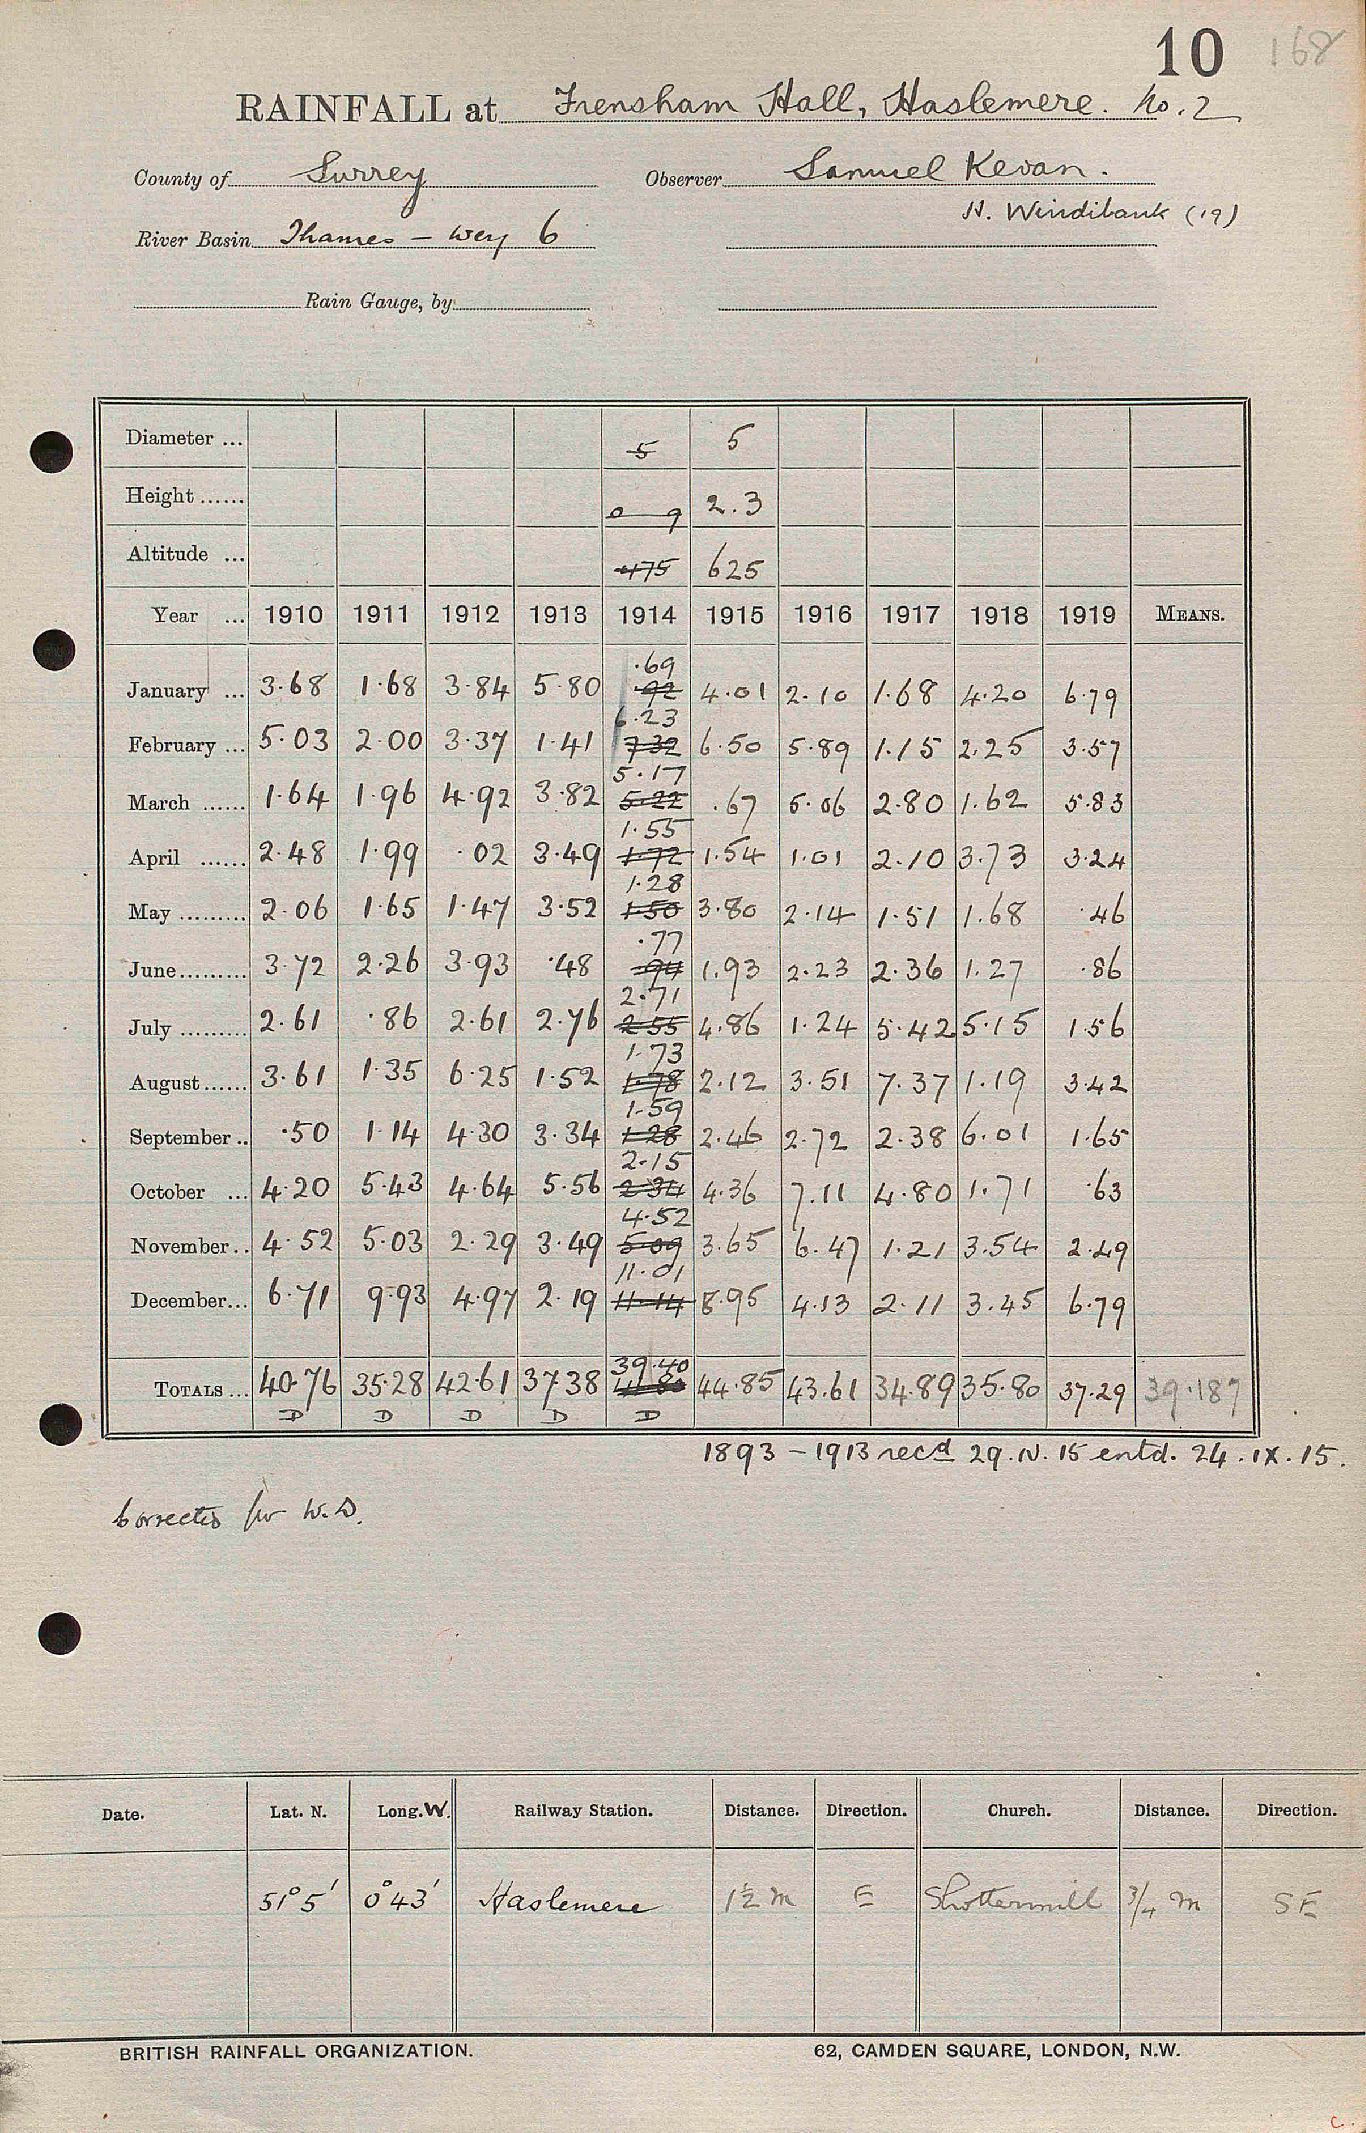 10 168
RAINFALL at Frensham Hall, Haslemere. No. 2
County of Surrey Observer Samuel Kevan.
H. Windibank (19)
River Basin Thames – Wey 6
Rain Gauge, by
Diameter ... 5 5
Height ...... 0 9 2.3
Altitude ... 475 625
Year ... 1910 1911 1912 1913 1914 1915 1916 1917 1918 1919 MEANS.
.69
January ... 3.68 1.68 3.84 5.80 .92 4.01 2.10 1.68 4.20 6.79
6.23
February ... 5.03 2.00 3.37 1.41 7.32 6.50 5.89 1.15 2.25 3.57
5.17
March ...... 1.64 1.96 4.92 3.82 5.22 .67 5.06 2.80 1.62 5.83
1.55
April ...... 2.48 1.99 .02 3.49 1.72 1.54 1.01 2.10 3.73 3.24
1.28
May ......... 2.06 1.65 1.47 3.52 1.50 3.80 2.14 1.51 1.68 .46
.77
June......... 3.72 2.26 3.93 .48 .94 1.93 2.23 2.36 1.27 .86
2.71
July ......... 2.61 .86 2.61 2.76 2.55 4.86 1.24 5.42 5.15 1.56
1.73
August...... 3.61 1.35 6.25 1.52 1.78 2.12 3.51 7.37 1.19 3.42
1.59
September .. .50 1.14 4.30 3.34 1.28 2.46 2.72 2.38 6.01 1.65
2.15
October ... 4.20 5.43 4.64 5.56 2.34 4.36 7.11 4.80 1.71 .63
4.52
November .. 4.52 5.03 2.29 3.49 5.09 3.65 6.47 1.21 3.54 2.49
11.01
December... 6.71 9.93 4.97 2.19 11.14 8.95 4.13 2.11 3.45 6.79
39.40
TOTALS ... 40.76 35.28 42.61 37.38 41.80 44.85 43.61 34.89 35.80 37.29 39.187
D D D D D
1893 – 1913 recd 29.IV.15 entd. 24.IX.15.
Corrected for W.D.
Date. Lat. N. Long. W. Railway Station. Distance. Direction. Church. Distance. Direction.
51° 5' 0° 43' Haslemere 1½ m E Shottermill 3/4 m SE
BRITISH RAINFALL ORGANIZATION. 62, CAMDEN SQUARE, LONDON, N.W.
C.